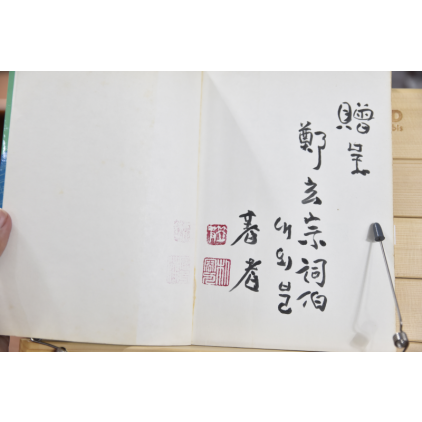 贈呈
鄭玄宗詞伯
내외분
著者